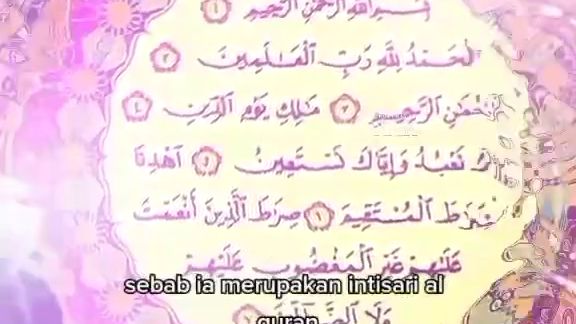 بِسْمِ اللَّهِ الرَّحْمَٰنِ الرَّحِيمِ ١
الْحَمْدُ لِلَّهِ رَبِّ الْعَٰلَمِينَ ٢
الرَّحْمَٰنِ الرَّحِيمِ ٣ مَٰلِكِ يَوْمِ الدِّينِ ٤
نَعْبُدُ وَإِيَّاكَ نَسْتَعِينُ ٥ اهْدِنَا
الصِّرَٰطَ الْمُسْتَقِيمَ ٦ صِرَٰطَ الَّذِينَ أَنْعَمْتَ
عَلَيْهِمْ غَيْرِ الْمَغْضُوبِ عَلَيْهِمْ
وَلَا الضَّالِّينَ
sebab ia merupakan intisari al
quran